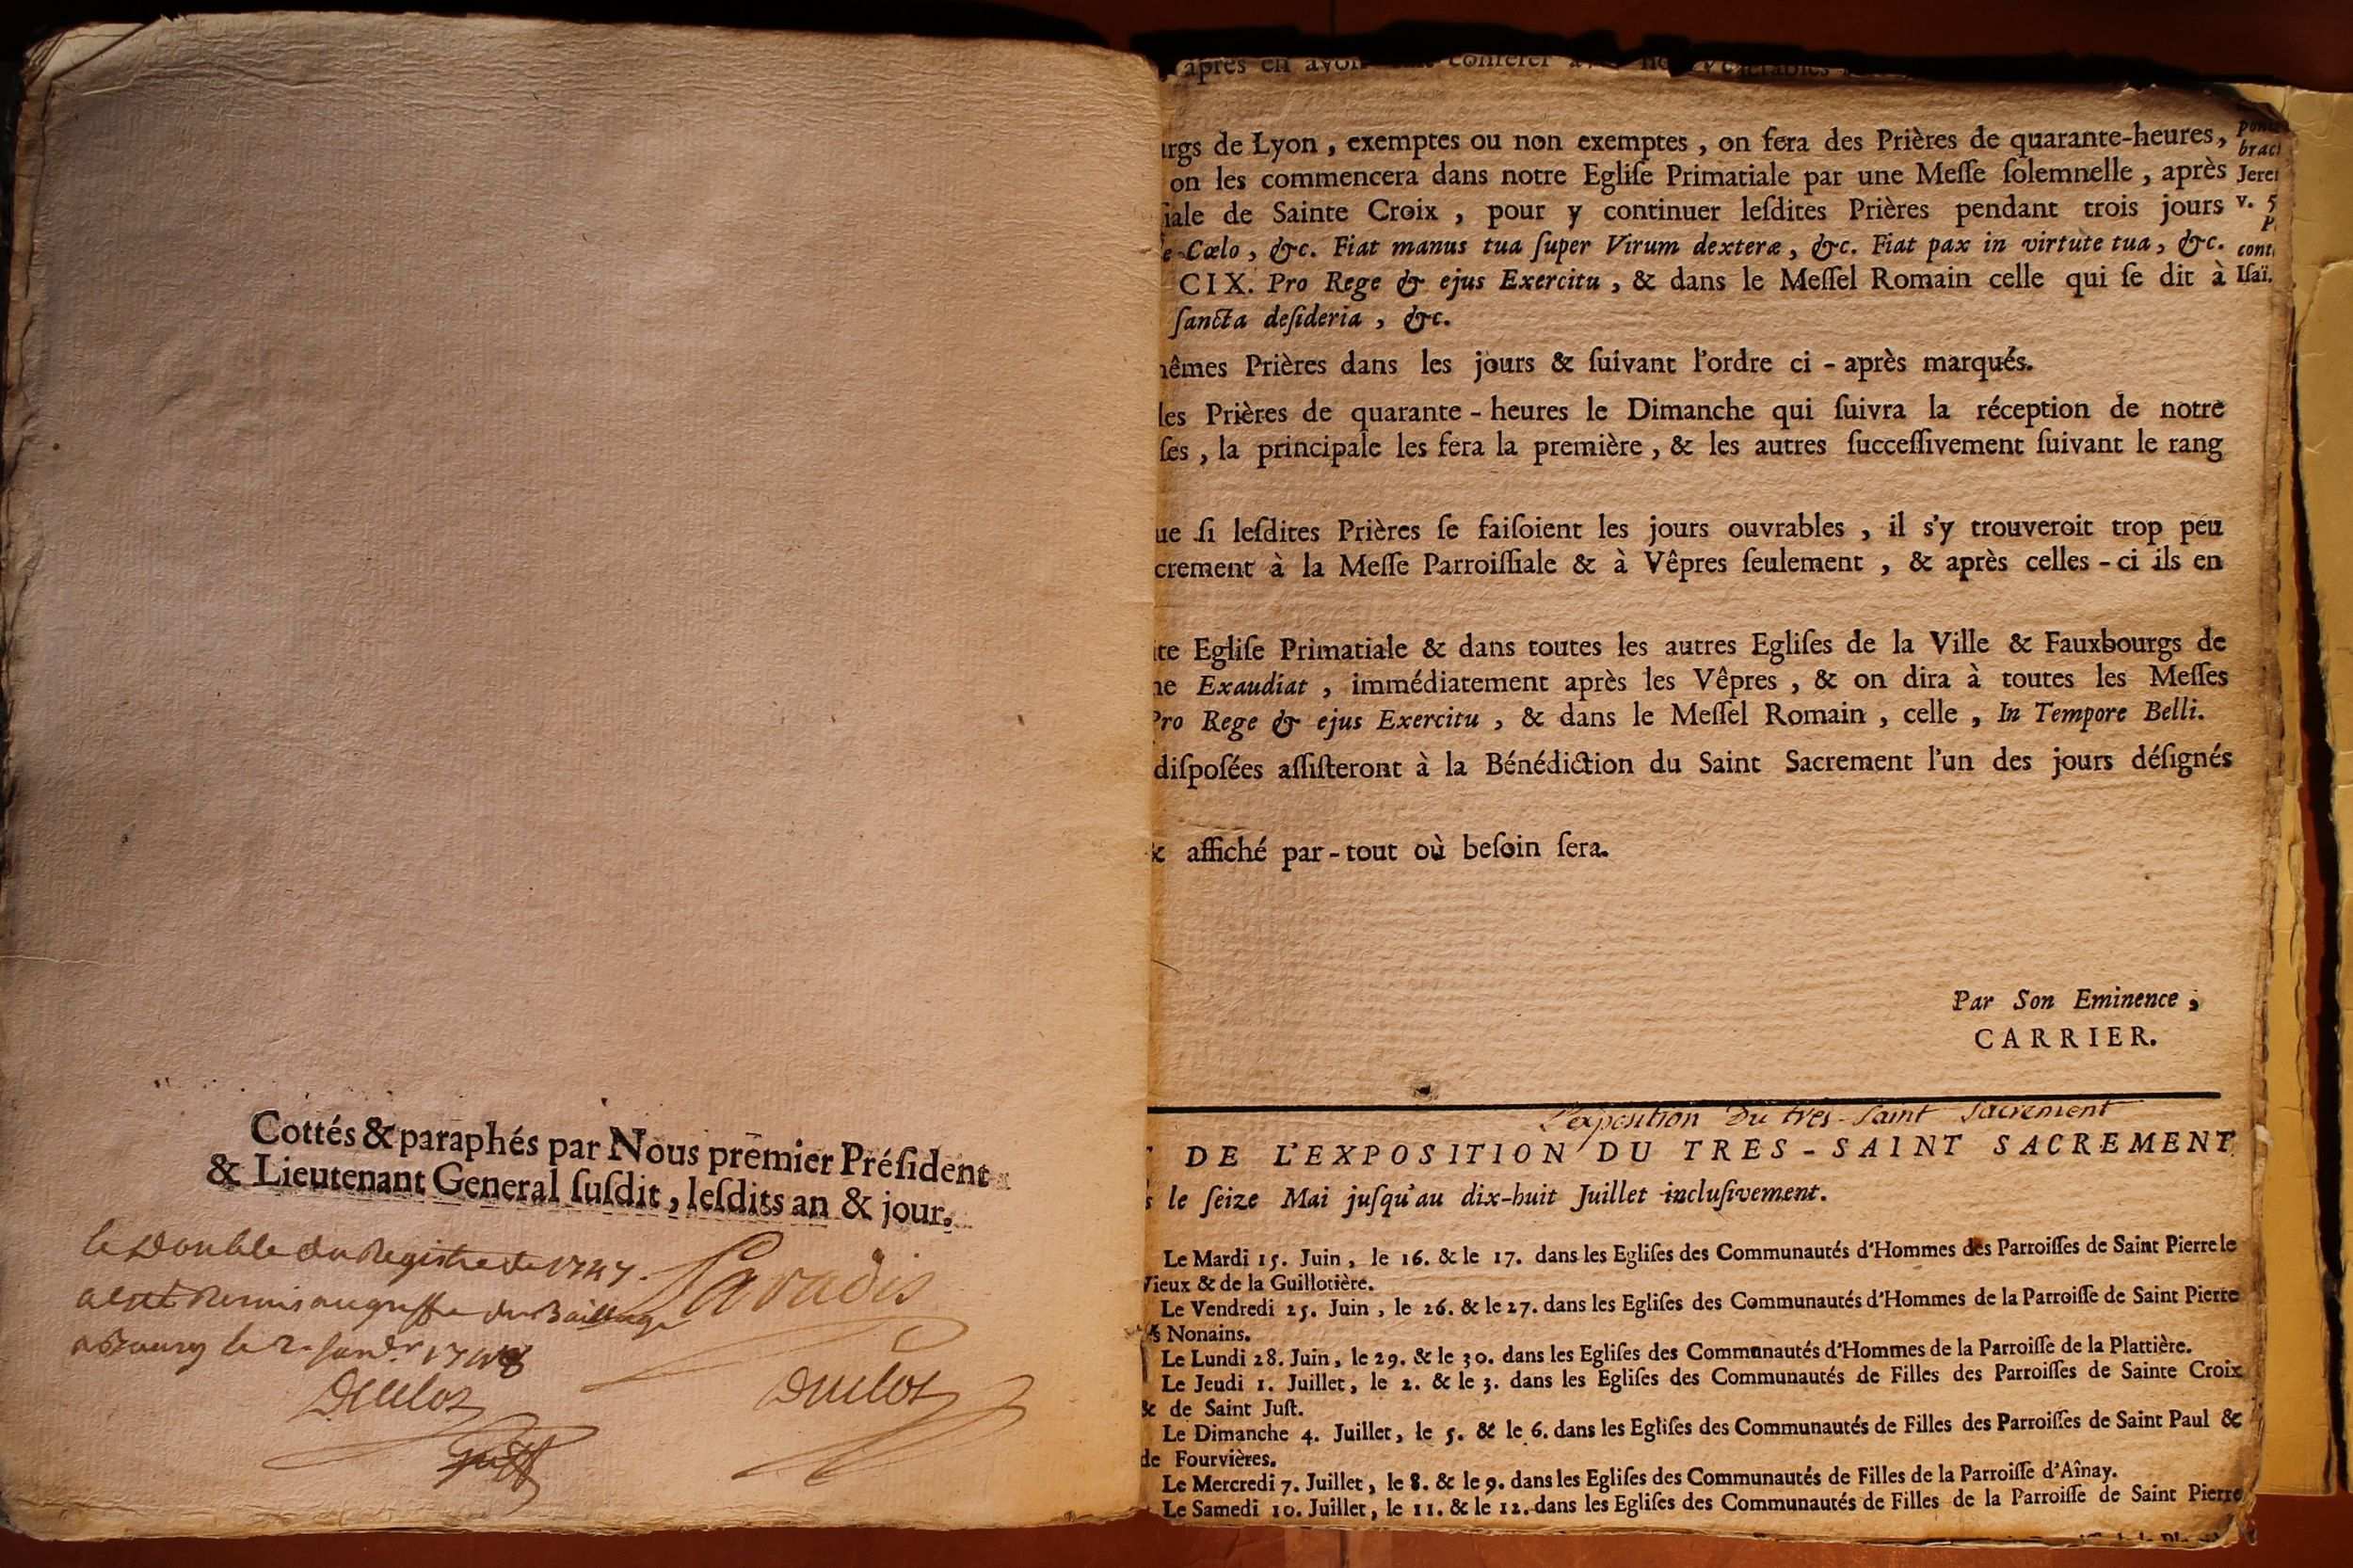 Cottés & paraphés par Nous premier Préſident
& Lieutenant General ſuſdit, leſdits an & jour.
le Double du Registre de 1747.
a etté Remis au greffe du Bailliage
a Bourg le 2. janv.r 1748
Paradis
Duclos
Duclos
Greff
après en avoir conferer
urgs de Lyon, exemptes ou non exemptes, on fera des Prières de quarante-heures,
on les commencera dans notre Egliſe Primatiale par une Meſſe ſolemnelle, après
iale de Sainte Croix, pour y continuer leſdites Prières pendant trois jours
e Cœlo, &c. Fiat manus tua ſuper Virum dexteræ, &c. Fiat pax in virtute tua, &c.
CIX. Pro Rege & ejus Exercitu, & dans le Meſſel Romain celle qui ſe dit à
ſancta deſideria, &c.
bracl
Jerem
v. 5
cont
Iſaï.
êmes Prières dans les jours & ſuivant l'ordre ci-après marqués.
les Prières de quarante-heures le Dimanche qui ſuivra la réception de notre
ſes, la principale les fera la première, & les autres ſucceſſivement ſuivant le rang
ue ſi leſdites Prières ſe faiſoient les jours ouvrables, il s'y trouveroit trop peu
crement à la Meſſe Parroiſſiale & à Vêpres ſeulement, & après celles-ci ils en
te Egliſe Primatiale & dans toutes les autres Egliſes de la Ville & Fauxbourgs de
ne Exaudiat, immédiatement après les Vêpres, & on dira à toutes les Meſſes
Pro Rege & ejus Exercitu, & dans le Meſſel Romain, celle, In Tempore Belli.
diſpoſées aſſiſteront à la Bénédiction du Saint Sacrement l'un des jours déſignés
& affiché par-tout où beſoin ſera.
Par Son Eminence,
CARRIER.
L'exposition Du très-saint Sacrement
DE L'EXPOSITION DU TRES-SAINT SACREMENT
s le ſeize Mai juſqu'au dix-huit Juillet incluſivement.
Le Mardi 15. Juin, le 16. & le 17. dans les Egliſes des Communautés d'Hommes des Parroiſſes de Saint Pierre le
Vieux & de la Guillotière.
Le Vendredi 25. Juin, le 26. & le 27. dans les Egliſes des Communautés d'Hommes de la Parroiſſe de Saint Pierre
s Nonains.
Le Lundi 28. Juin, le 29. & le 30. dans les Egliſes des Communautés d'Hommes de la Parroiſſe de la Plattière.
Le Jeudi 1. Juillet, le 2. & le 3. dans les Egliſes des Communautés de Filles des Parroiſſes de Sainte Croix
& de Saint Juſt.
Le Dimanche 4. Juillet, le 5. & le 6. dans les Egliſes des Communautés de Filles des Parroiſſes de Saint Paul &
de Fourvières.
Le Mercredi 7. Juillet, le 8. & le 9. dans les Egliſes des Communautés de Filles de la Parroiſſe d'Aînay.
Le Samedi 10. Juillet, le 11. & le 12. dans les Egliſes des Communautés de Filles de la Parroiſſe de Saint Pierre